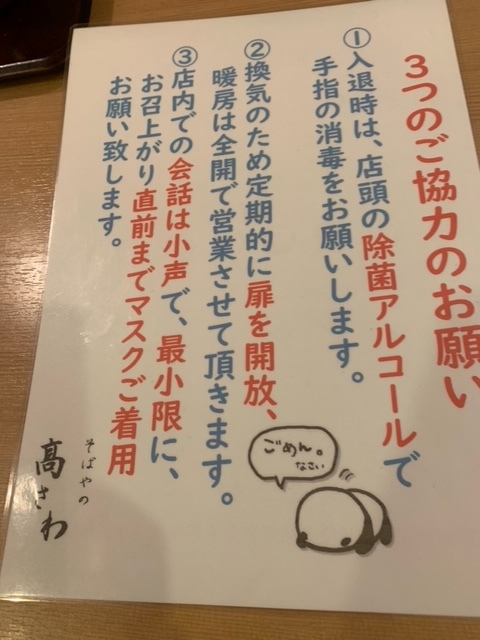 3つのご協力のお願い
①入退時は、店頭の除菌アルコールで
手指の消毒をお願いします。
②換気のため定期的に扉を開放、
暖房は全開で営業させて頂きます。
③店内での会話は小声で、最小限に、
お召上がり直前までマスクご着用
お願い致します。
ごめん。
なさい
そばやの
高さわ